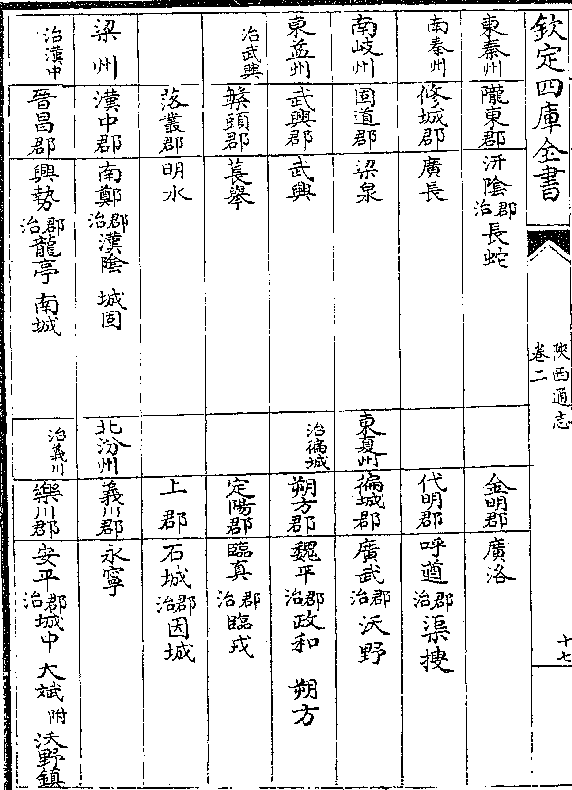 欽定四庫全書
陝西通志
卷二
十七
東秦州 隴東郡 汧陰郡治 長蛇
南秦州 修城郡 廣長
南岐州 固道郡 梁泉
東益州 武興郡 武興
治武興 槃頭郡 萇舉
落叢郡 明水
梁州 漢中郡 南鄭郡治 漢陰 城固
治漢中 晉昌郡 興勢郡治 龍亭 南城
金明郡 廣洛
代明郡 呼遒郡治 渠搜
東夏州 徧城郡 廣武郡治 沃野
治徧城 朔方郡 魏平郡治 政和 朔方
定陽郡 臨真郡治 臨戎
上郡 石城郡治 因城
北汾州 義川郡 永寧
治義川 樂川郡 安平郡治 城中 大斌 附 沃野鎮